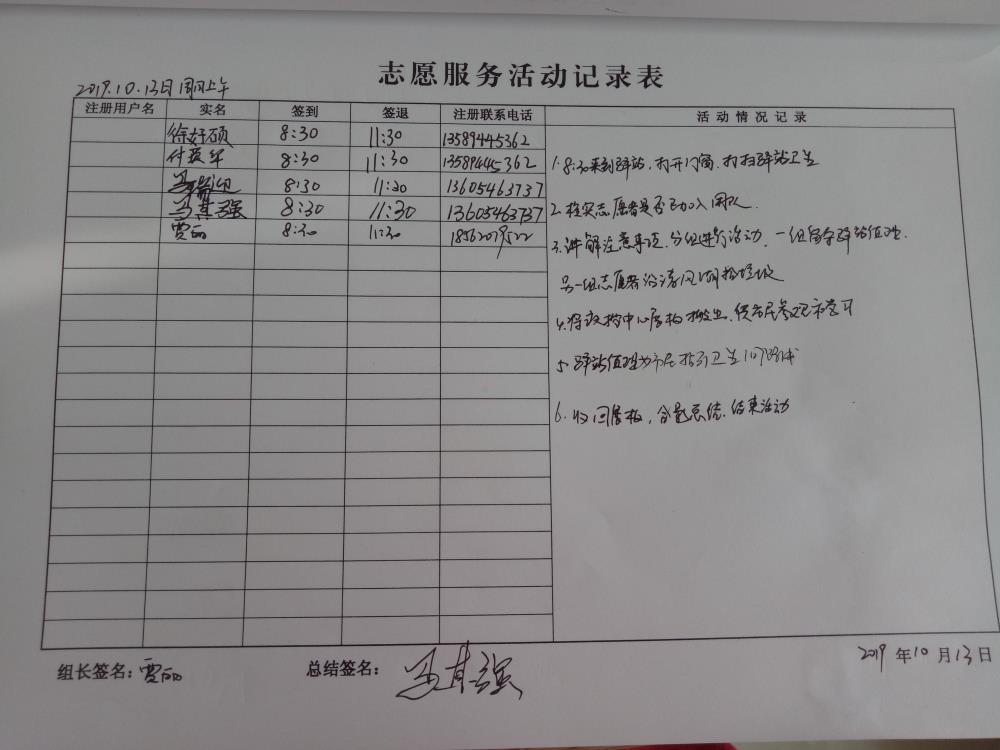 志愿服务活动记录表
2019.10.13日 周日上午
注册用户名 实名 签到 签退 注册联系电话 活动情况记录
徐好硕 8:30 11:30 13589445362
付 8:30 11:30 13589445362
马 8:30 11:30 13605463737
马其强 8:30 11:30 13605463737
贾丽 8:30 11:30 18562079522
1. 8:30来到驿站,打开门窗,打扫驿站卫生
2. 核实志愿者是否已加入团队.
3. 讲解注意事项,分组进行活动,一组留守驿站值班.
另一组志愿者沿清风湖捡垃圾
4. 将 中心展板搬出,供居民参观和学习
5. 驿站值班为市民指引卫生间
6. 收回展板, 总结,结束活动
组长签名:贾丽 总结签名:马其强 2019年10月13日